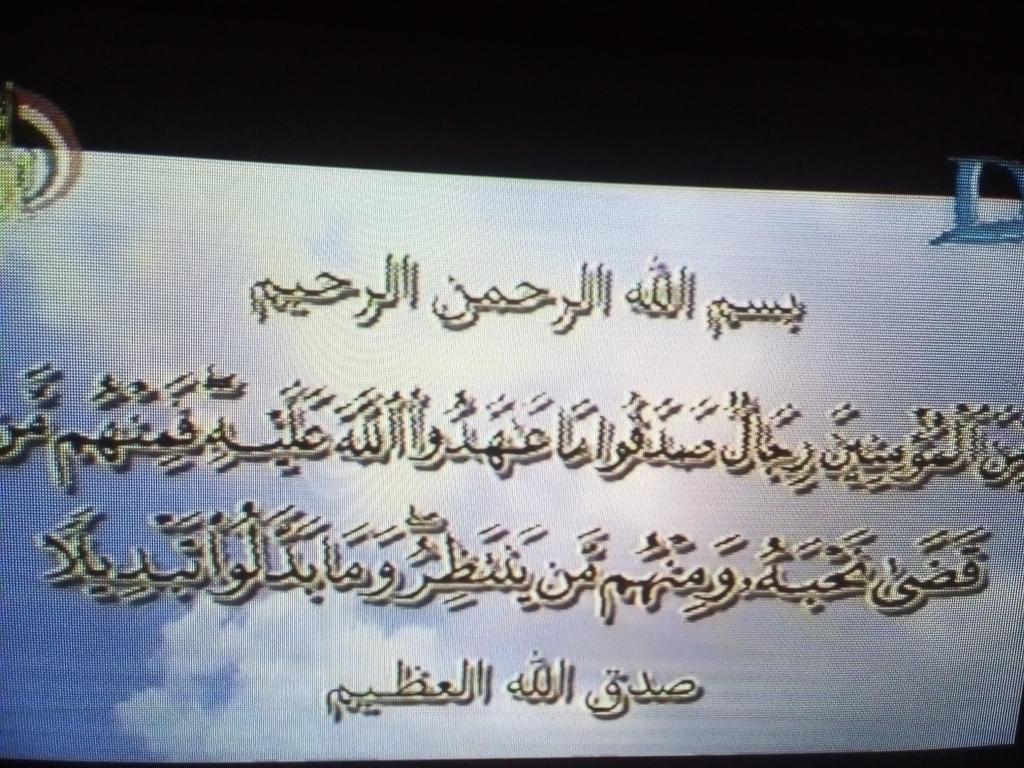 بسم الله الرحمن الرحيم
مِّنَ ٱلْمُؤْمِنِينَ رِجَالٌ صَدَقُوا۟ مَا عَـٰهَدُوا۟ ٱللَّهَ عَلَيْهِ ۖ فَمِنْهُم مَّن
قَضَىٰ نَحْبَهُۥ وَمِنْهُم مَّن يَنتَظِرُ ۖ وَمَا بَدَّلُوا۟ تَبْدِيلًا
صدق الله العظيم